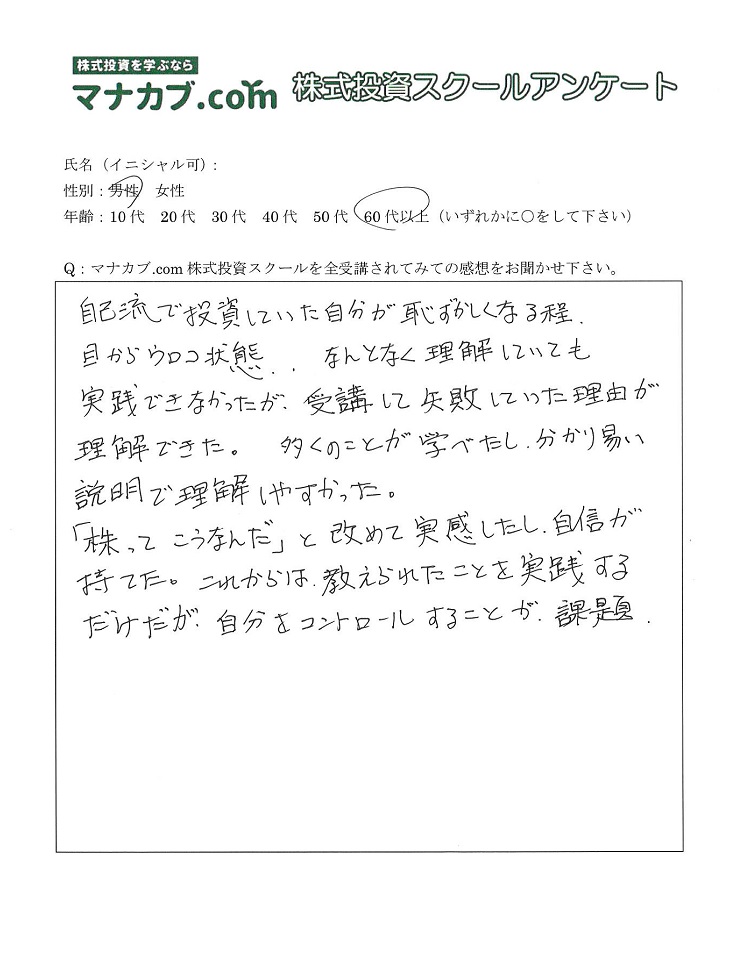 株式投資を学ぶなら
マナカブ.com 株式投資スクールアンケート
氏名（イニシャル可）:
性別：男性　女性
年齢：10代　20代　30代　40代　50代　60代以上（いずれかに○をして下さい）
Q：マナカブ.com 株式投資スクールを全受講されてみての感想をお聞かせ下さい。
自己流で投資していた自分が恥ずかしくなる程、
目からウロコ状態... なんとなく理解していても
実践できなかったが、受講して失敗していった理由が
理解できた。 多くのことが学べたし、分かり易い
説明で理解しやすかった。
「株って こうなんだ」と改めて実感したし、自信が
持てた。これからは、教えられたことを実践する
だけだが、自分をコントロールすることが、課題.